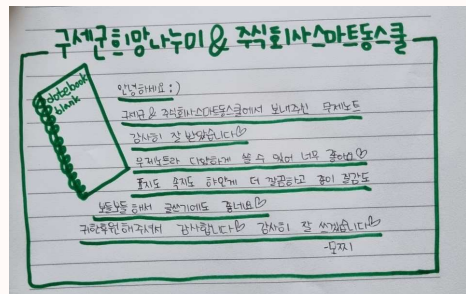 구세군희망나누미 & 주식회사스마트동스쿨
notebook
blank
안녕하세요 :)
구세군 & 주식회사스마트동스쿨에서 보내주신 무제노트
감사히 잘 받았습니다♡
무제노트라 다양하게 쓸 수 있어 너무 좋아요♡
표지도 속지도 하얗게 더 깔끔하고 종이 질감도
보들보들 해서 글쓰기에도 좋네요♡
귀한후원해주셔서 감사합니다♡ 감사히 잘 쓰겠습니다♡
-모찌